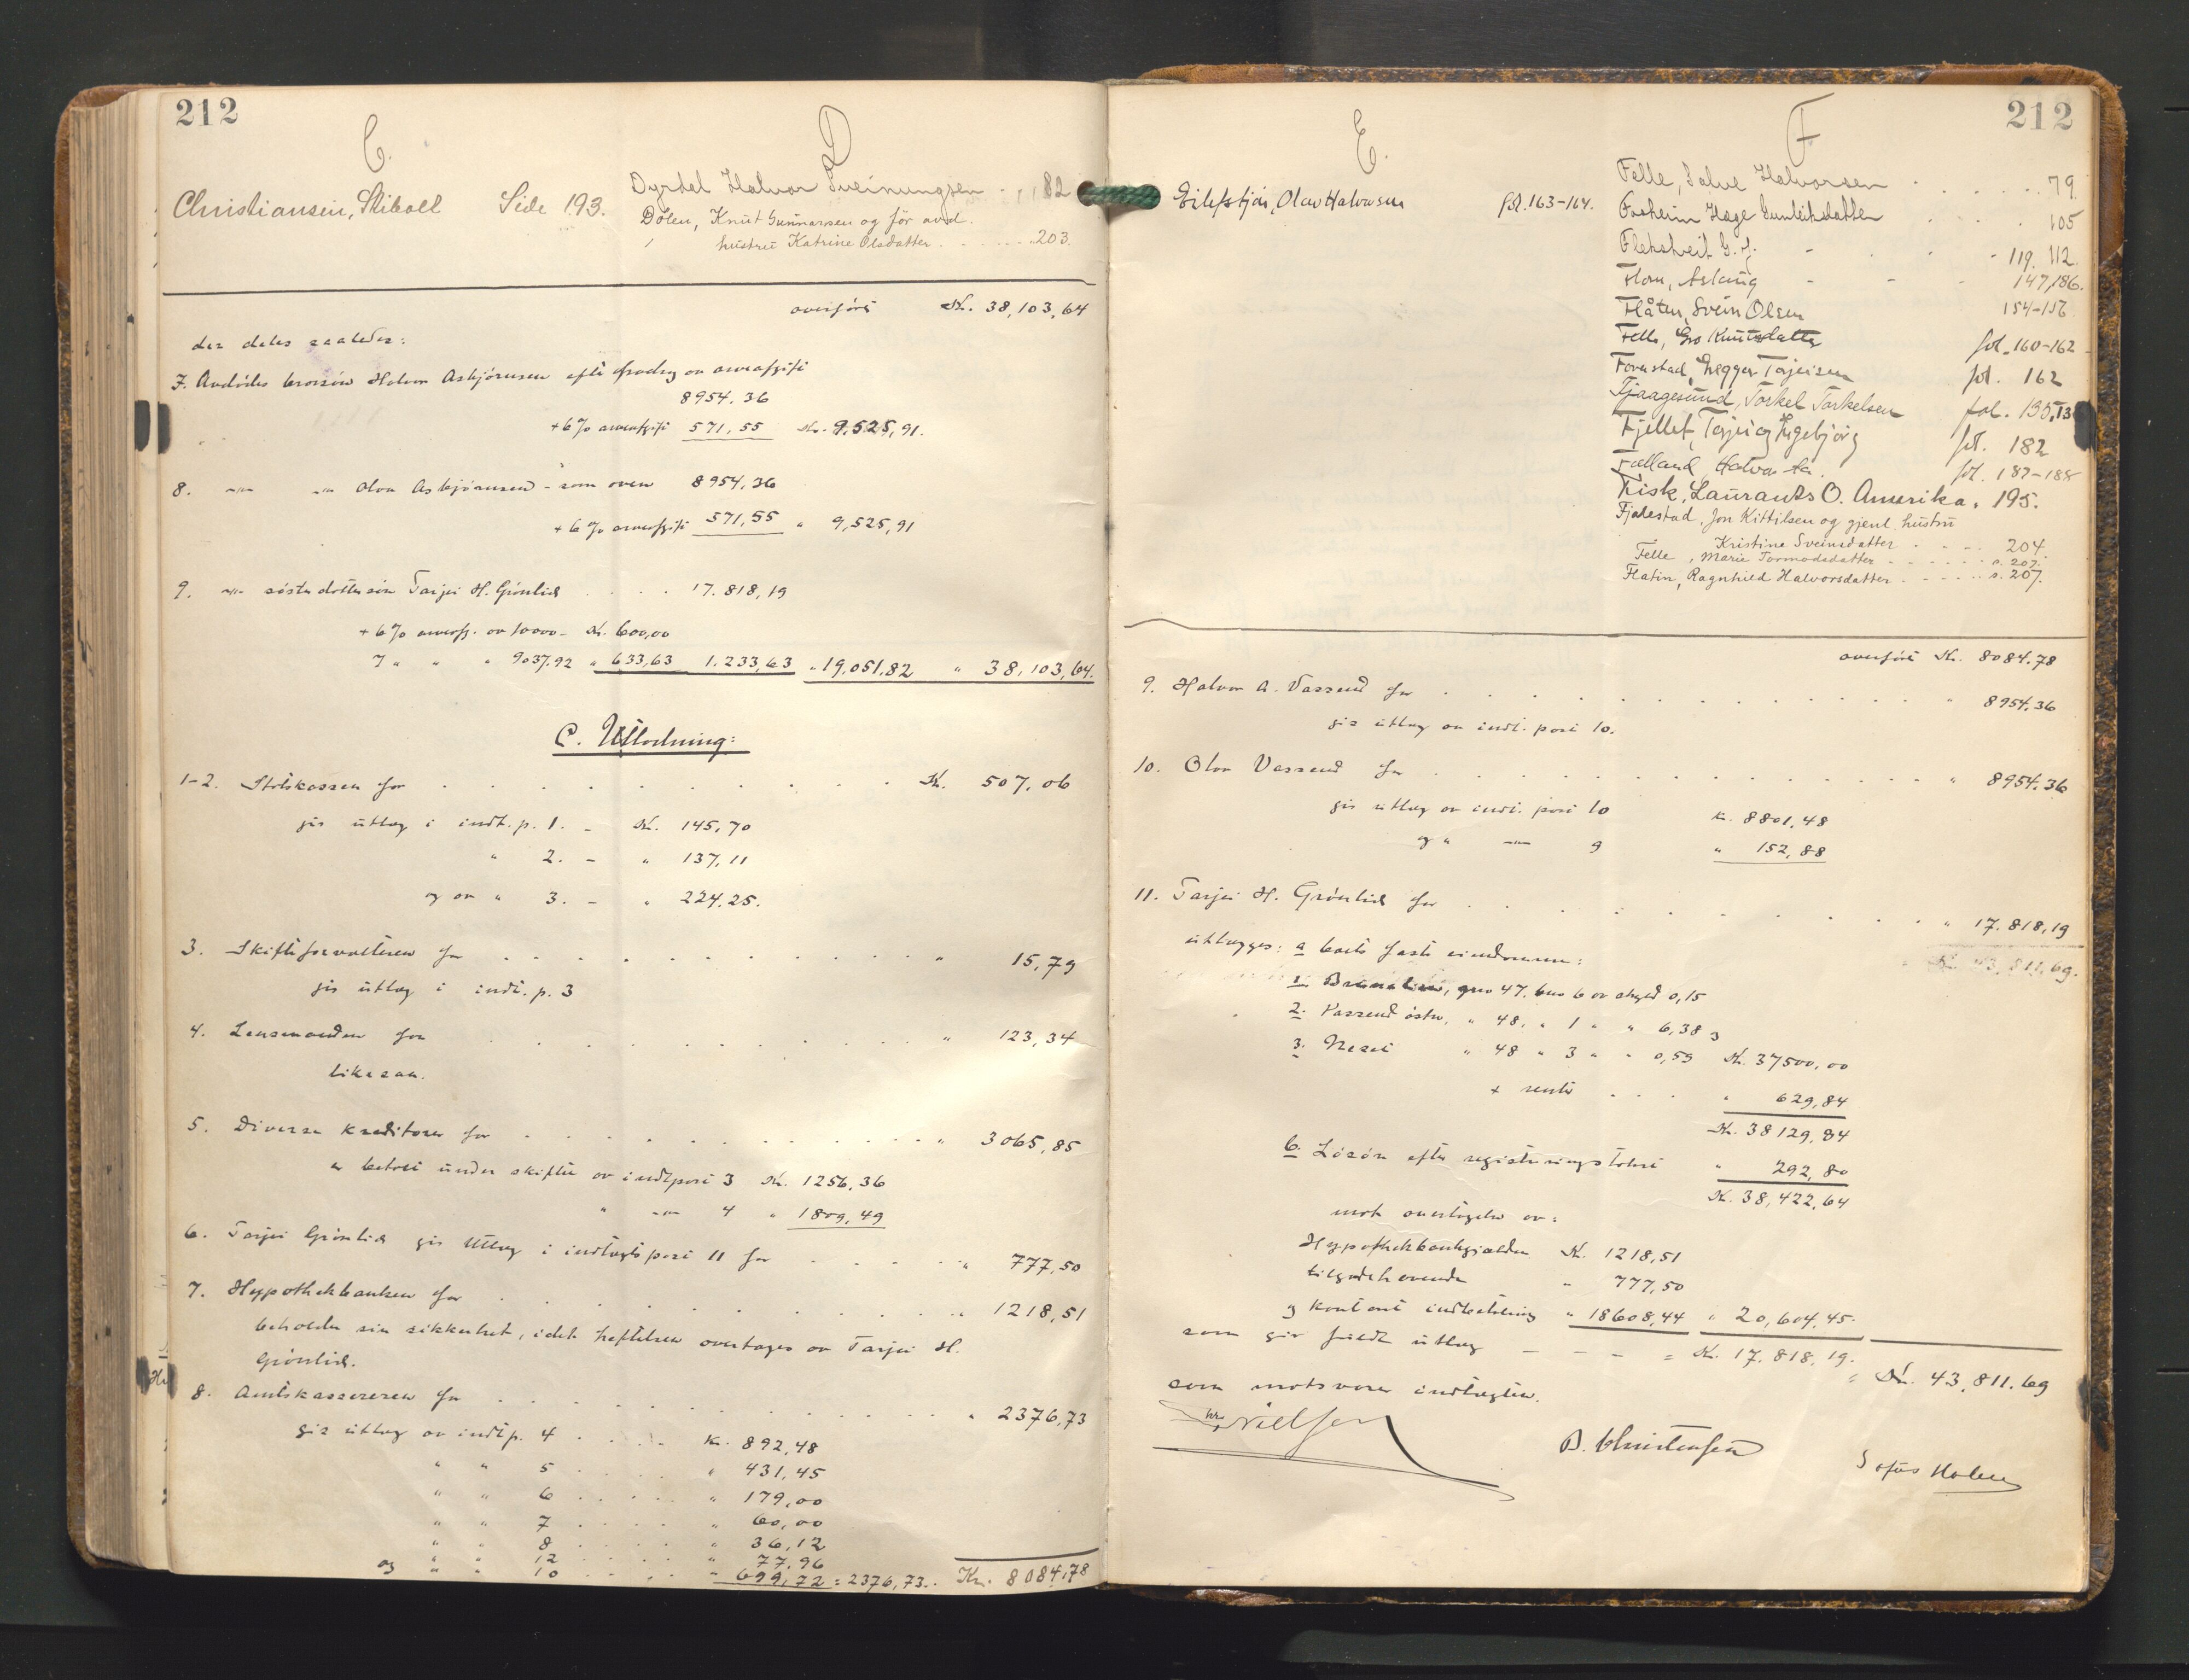 212
C.
D
Christiansen, Stiboll Side 193.
Dyrdal Halvor Sveinungsen 182
Dölen, Knut Gunnarsen og för avd.
hustru Katrine Olsdatter. 203.
overført Kr. 38,103,64
der deles saaledes:
7. Avdödes brorsön Halvor Asbjörnsen efter fradrag av arveafgift
8954.36
+6% arveafgift 571,55 Kr. 9,525,91.
8. -"- -"- Olav Asbjörnsen - som oven 8954,36
+6% arveafgift 571,55 " 9,525,91
9. -"- søsterdattersön Tarjei H. Grönlid 17.818,19
+6% arveafg. av 10000 - Kr. 600,00
7 " " " 9037.92 " 633,63 1.233,63 " 19,051,82 " 38,103,64.
C. Utlodning:
1-2. Statskassen for Kr. 507,06
gis utlæg i indt. p. 1. - Kr. 145,70
" 2. - " 137,11
og av " 3. - " 224.25.
3. Skifteforvalteren for " 15,79
gis utlæg i indt. p. 3
4. Lensmanden for " 123,34
likesaa.
5. Diverse kreditorer for " 3065,85
er betalt under skiftet av indtpost 3 Kr. 1256,36
" -"- 4 " 1809,49
6. Tarjei Grönlid gis utlæg i indtægtspost 11 for " 777,50
7. Hypothekbanken for " 1218,51
beholder sin sikkerhet, idet heftelsen overtages av Tarjei H.
Grönlid.
8. Amtskassereren for " 2376,73
gis utlæg av indtp. 4 Kr. 892,48
" " 5 " 431,45
" " 6 " 179,00
" " 7 " 60,00
" " 8 " 36,12
" " 12 " 77,96
og " " 10 " 699,72 = 2376,73. Kr. 8084,78
212
E.
F
Eilefstjön, Olav Halvorsen fol. 163-164.
Felle, Salve Halvorsen 79.
Forheim Hæge Gunleiksdatter 105
Flekstveit G. J. 119. 112.
Flom, Aslaug 147,186.
Flåten, Svein Olsen 154-156
Felle, Gro Knutsdatter fol. 160-162
Forestad, Gregger Tarjeisen fol. 162
Fjaagesund, Torkel Torkelsen fol. 135,13
Fjellet, Terjei og Ingebjörg fol. 182
Felland, Halvor fol. 187-188
Fisk, Laurants O. Amerika. 195.
Fjalestad, Jon Kittilsen og gjenl. hustru
Kristine Sveinsdatter 204.
Felle, Marie Tormodsdatter s. 207.
Flatin, Ragnhild Halvorsdatter s. 207.
overført Kr. 8084.78
9. Halvor A. Vassend for " 8954.36
gis utlæg av indt. post 10.
10. Olav Vassend for " 8954.36
gis utlæg av indt. post 10 kr. 8801,48
og " -"- 9 " 152,88
11. Tarjei H. Grönlid for " 17.818,19
Kr. 43,811,69.
utlægges: a boets faste eiendomme:
1. gno 47. bno 6 av skyld 0,15
2. Vassend östre, " 48. " 1 " " 6,38 og
3. Neset " 48 " 3 " " 0,59 Kr. 37500,00
+ renter " 629,84
Kr. 38129,84
b. Lösöre efter registreringstakst " 292,80
Kr. 38,422,64
mot overtagelse av:
Hypothekbankgjælden Kr. 1218,51
tilgodehavende " 777,50
og kontant indbetaling " 18608,44 " 20,604,45.
som gir fuldt utlæg - - - = Kr. 17.818,19.
" Kr. 43.811.69
som motsvarer indtægten.
Nielsen
B. Christensen
Sofus Holm